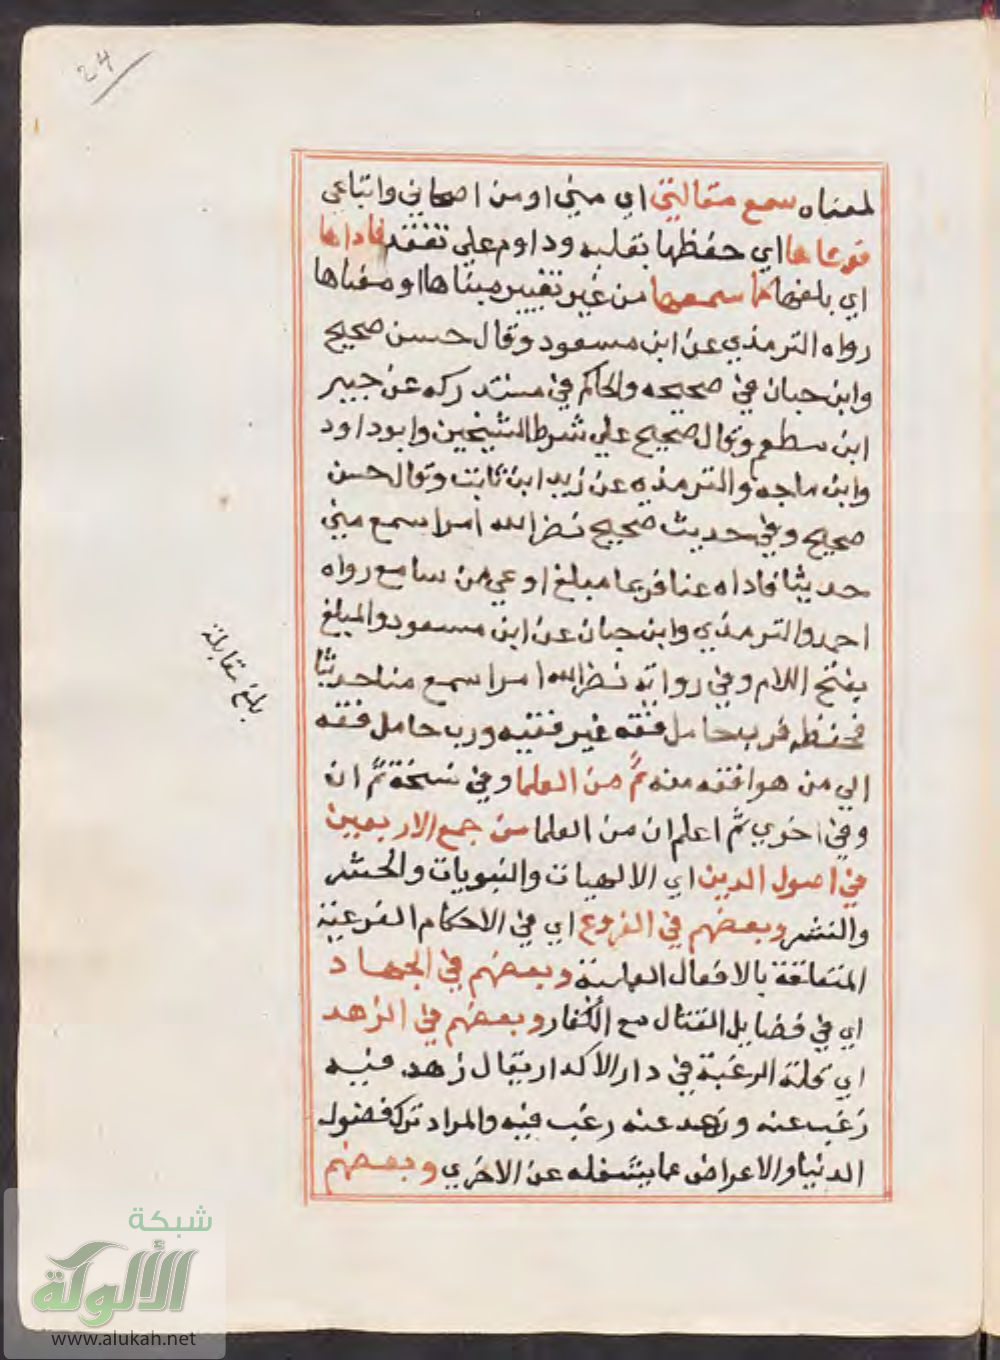 24
لمعناه سمع مقالتي اي مني او من اصحابي واتباعي
فوعاها اي حفظها بقلبه وداوم علي تفقد فاداها
اي بلغها كما سمعها من غير تغيير مبناها او معناها
رواه الترمذي عن ابن مسعود وقال حسن صحيح
وابن حبان في صحيحه والحاكم في مستدركه عن جبير
ابن مطعم وقال صحيح علي شرط الشيخين وابو داود
وابن ماجه والترمذي عن زيد ابن ثابت وقال حسن
صحيح وفي حديث صحيح نضر الله امرا سمع مني
حديثا فاداه عنا فربما مبلغ اوعي من سامع رواه
احمد والترمذي وابن حبان عن ابن مسعود والمبلغ
بفتح اللام وفي رواية نضر الله امرا سمع منا حديثا
فحفظه فرب حامل فقه غير فقيه ورب حامل فقه
الي من هو افقه منه ثم من العلما وفي نسخة ثم ان
وفي اخري ثم اعلم ان من العلما من جمع الاربعين
في اصول الدين اي الالهيات والنبويات والحشر
والنشر وبعضهم في الفروع اي في الاحكام الفرعية
المتعلقة بالافعال العملية وبعضهم في الجهاد
اي في فضايل القتال مع الكفار وبعضهم في الزهد
اي قلة الرغبة في دار الاكدار يقال زهد فيه
رغب عنه وزهد عنه رغب فيه والمراد ترك فضول
الدنيا والاعراض عما يشغله عن الاخري وبعضهم
بلغ مقابلة
شبكة
الألوكة
www.alukah.net